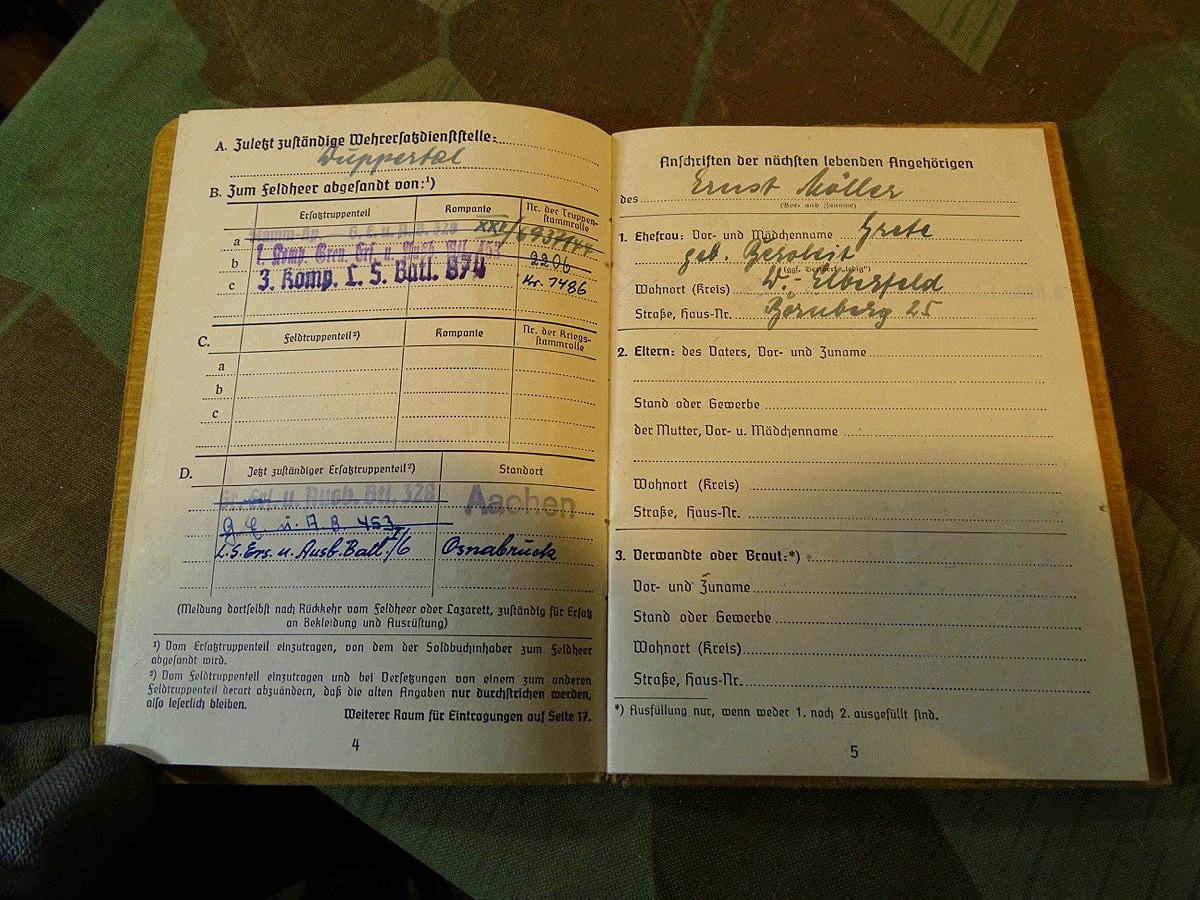 A. Zuletzt zuständige Wehrersatzdienststelle:
Wuppertal
B. Zum Feldheer abgesandt von:¹)
Ersatztruppenteil Kompanie Nr. der Truppen-
stammrolle
a Stamm-Kp. G. E. u. A. B. 328 XXI/
b 1. Komp. Gren. Ers. u. Ausb. Btl. 453 2206
c 3. Komp. L. S. Batl. 874 Kr. 1486
C. Feldtruppenteil²) Kompanie Nr. der Kriegs-
stammrolle
a
b
c
D. Jetzt zuständiger Ersatztruppenteil²) Standort
Gr. Ers. u. Ausb. Btl. 328 Aachen
G. E. u. A. B. 453
L.S. Ers. u. Ausb. Batl. /6 Osnabrück
(Meldung dortselbst nach Rückkehr vom Feldheer oder Lazarett, zuständig für Ersatz
an Bekleidung und Ausrüstung)
¹) Vom Ersatztruppenteil einzutragen, von dem der Soldbuchinhaber zum Feldheer
abgesandt wird.
²) Vom Feldtruppenteil einzutragen und bei Versetzungen von einem zum anderen
Feldtruppenteil derart abzuändern, daß die alten Angaben nur durchstrichen werden,
also leserlich bleiben.
Weiterer Raum für Eintragungen auf Seite 17.
4
Anschriften der nächsten lebenden Angehörigen
des Ernst Möller
(Vor- und Zuname)
1. Ehefrau: Vor- und Mädchenname Grete
geb.
(ggf. Vermerk „ledig“)
Wohnort (Kreis) W.-Elberfeld
Straße, Haus-Nr. 25
2. Eltern: des Vaters, Vor- und Zuname
Stand oder Gewerbe
der Mutter, Vor- u. Mädchenname
Wohnort (Kreis)
Straße, Haus-Nr.
3. Verwandte oder Braut:*)
Vor- und Zuname
Stand oder Gewerbe
Wohnort (Kreis)
Straße, Haus-Nr.
*) Ausfüllung nur, wenn weder 1. noch 2. ausgefüllt sind.
5